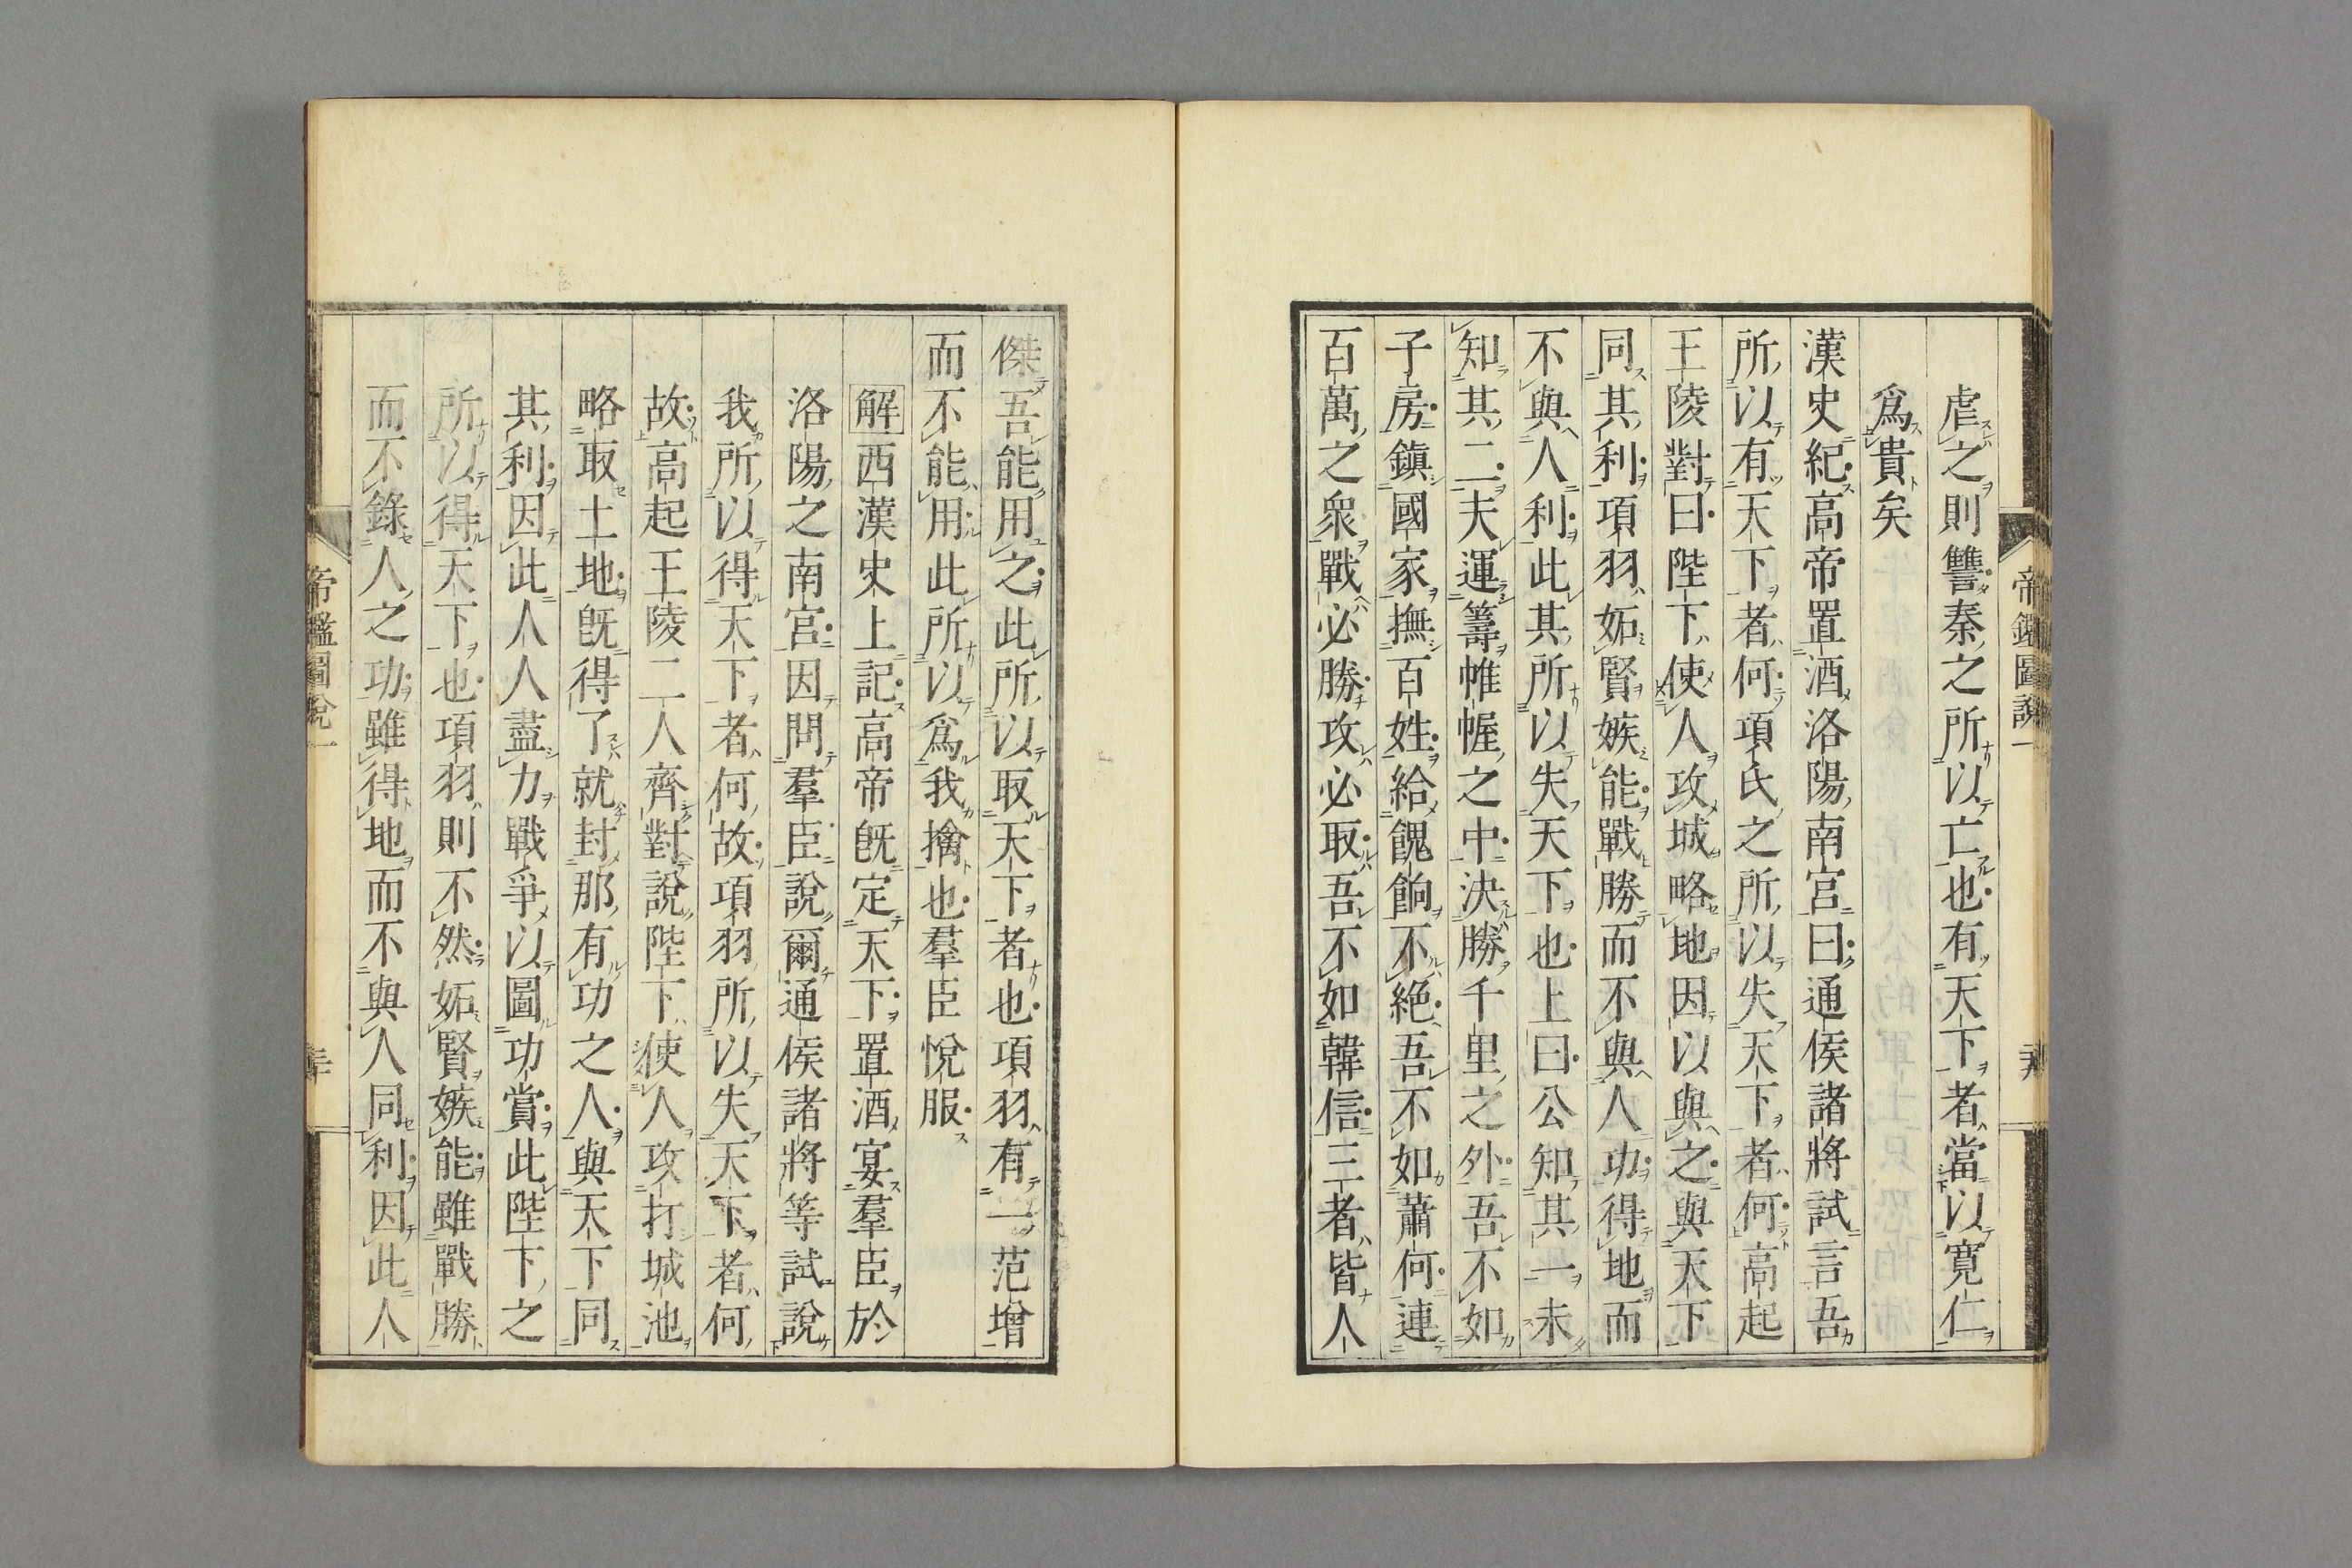 帝鑑圖說一
虐之則讐秦之所以亡也有天下者當以寬仁
爲貴矣
漢史紀高帝置酒洛陽南宮曰通侯諸將試言吾
所以有天下者何項氏之所以失天下者何高起
王陵對曰陛下使人攻城略地因以與之與天下
同其利項羽妬賢嫉能戰勝而不與人功得地而
不與人利此其所以失天下也上曰公知其一未
知其二夫運籌帷幄之中決勝千里之外吾不如
子房鎭國家撫百姓給餽餉不絕吾不如蕭何連
百萬之衆戰必勝攻必取吾不如韓信三者皆人
傑吾能用之此所以取天下者也項羽有一范增
而不能用此所以爲我擒也羣臣悅服
解西漢史上記高帝旣定天下置酒宴羣臣於
洛陽之南宮因問羣臣說爾通侯諸將等試說
我所以得天下者何故項羽所以失天下者何
故高起王陵二人齊對說陛下使人攻打城池
略取土地旣得了就封那有功之人與天下同
其利因此人人盡力戰爭以圖功賞此陛下之
所以得天下也項羽則不然妬賢嫉能雖戰勝
而不錄人之功雖得地而不與人同利因此人
帝鑑圖說一